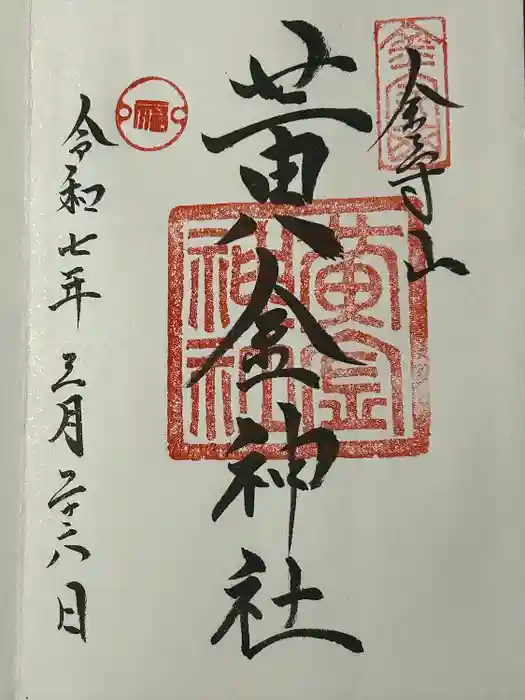 金華山
黄金神社
令和七年 三月二十六日
黄金
神社